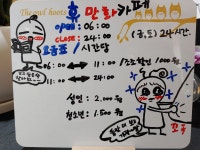 The owl hoots 휴 만화카페
open : 06 : 00
CLOSE : 24 : 00 (금, 토) 24시간
요금표 / 시간당
06 : 00 ↔ 11 : 00 / 조조할인 1.000원
11 : 00 ↔ 24 : 00
성인 : 2.000원
청소년 : 1.500원